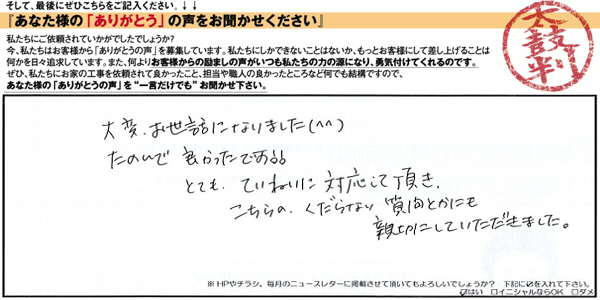 そして、最後にぜひこちらをご記入ください。↓↓
『あなた様の「ありがとう」の声をお聞かせください』
私たちにご依頼されていかがでしたでしょうか?
今、私たちはお客様から「ありがとうの声」を募集しています。私たちにしかできないことはないか、もっとお客様にして差し上げることは
何かを日々追求しています。また、何よりお客様からの励ましの声がいつも私たちの力の源になり、勇気付けてくれるのです。
ぜひ、私たちにお家の工事を依頼されて良かったこと、担当や職人の良かったところなど何でも結構ですので、
あなた様の「ありがとうの声」を“一言だけでも”お聞かせ下さい。
太鼓判
大変、お世話になりました(^^)
たのんで良かったです。
とても、ていねいに対応して頂き、
こちらの、くだらない質問とかにも
親切にしていただきました。
※HPやチラシ、毎月のニュースレターに掲載させて頂いてもよろしいでしょうか? 下記に☑を入れて下さい。
☑はい □イニシャルならOK □ダメ